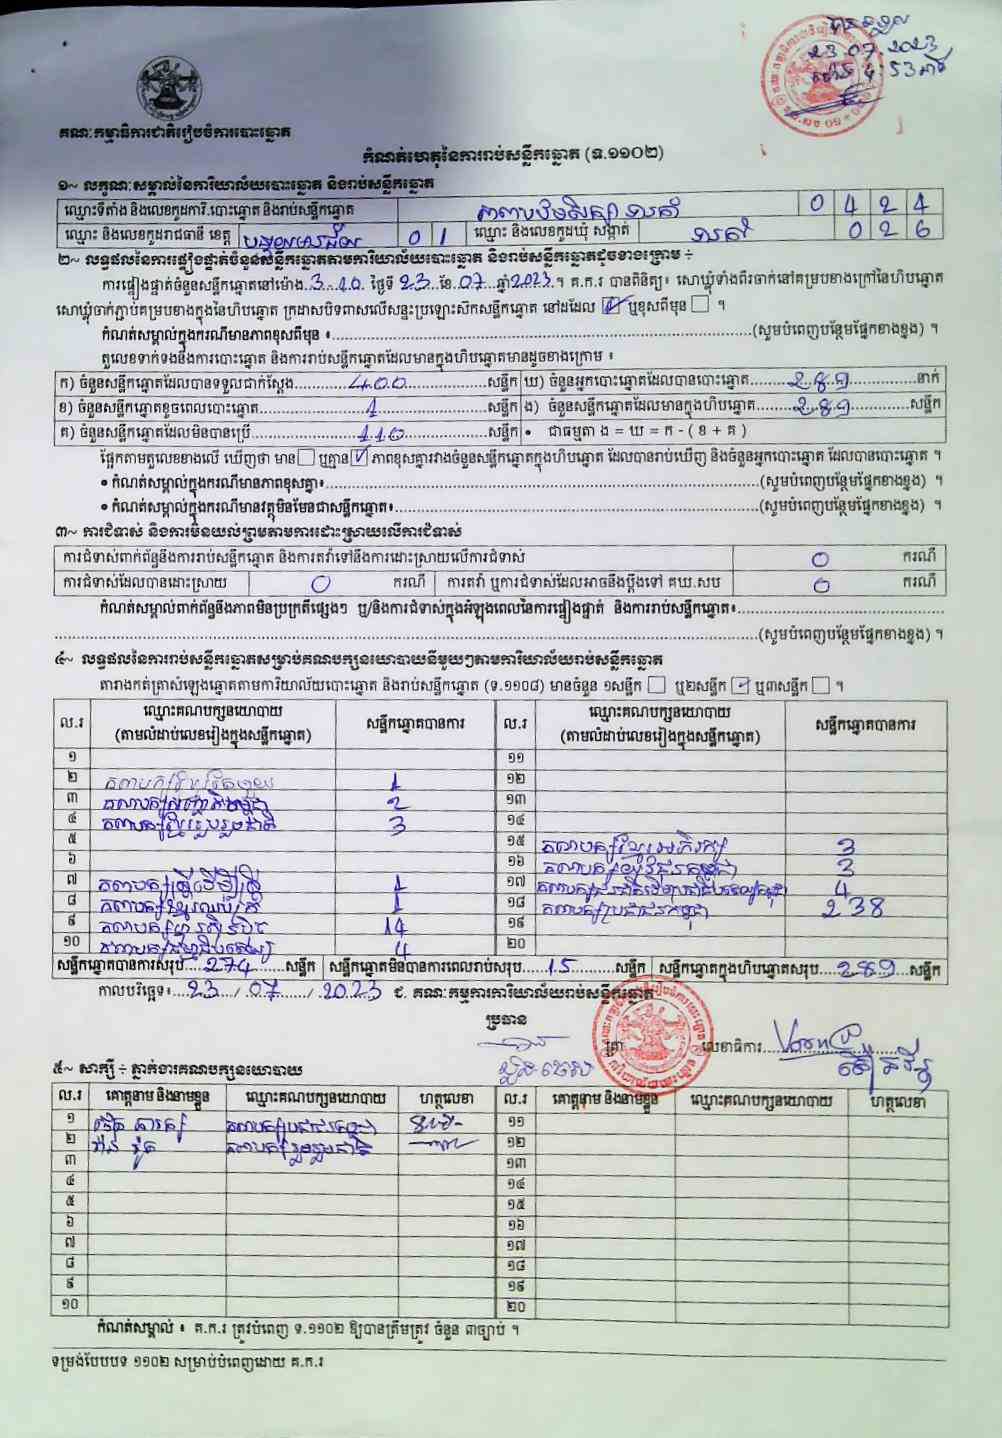 បានទទួល
23.07.2023
ម៉ោង 4:53 នាទី
គណៈកម្មាធិការជាតិរៀបចំការបោះឆ្នោត
កំណត់ហេតុនៃការរាប់សន្លឹកឆ្នោត (ទ.១១០២)
១~ លក្ខណៈសម្គាល់នៃការិយាល័យបោះឆ្នោត និងរាប់សន្លឹកឆ្នោត
ឈ្មោះទីតាំង និងលេខកូដការិ.បោះឆ្នោត និងរាប់សន្លឹកឆ្នោត 0 4 2 4
ឈ្មោះ និងលេខកូដរាជធានី ខេត្ត បន្ទាយមានជ័យ 0 1 ឈ្មោះ និងលេខកូដឃុំ សង្កាត់ 0 2 6
២~ លទ្ធផលនៃការផ្ទៀងផ្ទាត់ចំនួនសន្លឹកឆ្នោតតាមការិយាល័យបោះឆ្នោត និងរាប់សន្លឹកឆ្នោតដូចខាងក្រោម ÷
ការផ្ទៀងផ្ទាត់ចំនួនសន្លឹកឆ្នោតនៅម៉ោង.3.10. ថ្ងៃទី 23 ខែ.07...ឆ្នាំ2023.។ គ.ក.រ បានពិនិត្យ៖ សោឃ្លុំទាំងពីរចាក់នៅគម្របខាងក្រៅនៃហិបឆ្នោត
សោឃ្លុំចាក់ភ្ជាប់គម្របខាងក្នុងនៃហិបឆ្នោត ក្រដាសបិទពាសលើសន្ទះប្រឡោះសឹកសន្លឹកឆ្នោត នៅដដែល ☑ ឬខុសពីមុន ☐ ។
កំណត់សម្គាល់ក្នុងករណីមានភាពខុសពីមុន ៖........(សូមបំពេញបន្ថែមផ្នែកខាងខ្នង) ។
តួលេខទាក់ទងនឹងការបោះឆ្នោត និងការរាប់សន្លឹកឆ្នោតដែលមានក្នុងហិបឆ្នោតមានដូចខាងក្រោម ៖
ក) ចំនួនសន្លឹកឆ្នោតដែលបានទទួលជាក់ស្តែង........400........សន្លឹក ឃ) ចំនួនអ្នកបោះឆ្នោតដែលបានបោះឆ្នោត........289........នាក់
ខ) ចំនួនសន្លឹកឆ្នោតខូចពេលបោះឆ្នោត........1........សន្លឹក ង) ចំនួនសន្លឹកឆ្នោតដែលមានក្នុងហិបឆ្នោត........289........សន្លឹក
គ) ចំនួនសន្លឹកឆ្នោតដែលមិនបានប្រើ........110........សន្លឹក • ជាធម្មតា ង = ឃ = ក - ( ខ + គ )
ផ្អែកតាមតួលេខខាងលើ ឃើញថា មាន☐ ឬគ្មាន☑ ភាពខុសគ្នារវាងចំនួនសន្លឹកឆ្នោតក្នុងហិបឆ្នោត ដែលបានរាប់ឃើញ និងចំនួនអ្នកបោះឆ្នោត ដែលបានបោះឆ្នោត ។
• កំណត់សម្គាល់ក្នុងករណីមានភាពខុសគ្នា៖........(សូមបំពេញបន្ថែមផ្នែកខាងខ្នង) ។
• កំណត់សម្គាល់ក្នុងករណីមានវត្ថុមិនមែនជាសន្លឹកឆ្នោត៖........(សូមបំពេញបន្ថែមផ្នែកខាងខ្នង) ។
៣~ ការជំទាស់ និងការមិនយល់ព្រមតាមការដោះស្រាយលើការជំទាស់
ការជំទាស់ពាក់ព័ន្ធនឹងការរាប់សន្លឹកឆ្នោត និងការតវ៉ាទៅនឹងការដោះស្រាយលើការជំទាស់ 0 ករណី
ការជំទាស់ដែលបានដោះស្រាយ 0 ករណី ការតវ៉ា ឬការជំទាស់ដែលអាចនឹងប្តឹងទៅ គឃ.សប 0 ករណី
កំណត់សម្គាល់ពាក់ព័ន្ធនឹងភាពមិនប្រក្រតីផ្សេងៗ ឬ/និងការជំទាស់ក្នុងអំឡុងពេលនៃការផ្ទៀងផ្ទាត់ និងការរាប់សន្លឹកឆ្នោត៖........
........(សូមបំពេញបន្ថែមផ្នែកខាងខ្នង) ។
៤~ លទ្ធផលនៃការរាប់សន្លឹកឆ្នោតសម្រាប់គណបក្សនយោបាយនីមួយៗតាមការិយាល័យរាប់សន្លឹកឆ្នោត
តារាងកត់ត្រាសំឡេងឆ្នោតតាមការិយាល័យបោះឆ្នោត និងរាប់សន្លឹកឆ្នោត (ទ.១១០៨) មានចំនួន ១សន្លឹក ☐ ឬ២សន្លឹក ☑ ឬ៣សន្លឹក ☐ ។
ល.រ ឈ្មោះគណបក្សនយោបាយ (តាមលំដាប់លេខរៀងក្នុងសន្លឹកឆ្នោត) សន្លឹកឆ្នោតបានការ ល.រ ឈ្មោះគណបក្សនយោបាយ (តាមលំដាប់លេខរៀងក្នុងសន្លឹកឆ្នោត) សន្លឹកឆ្នោតបានការ
១ ១១
២ 1 ១២
៣ 2 ១៣
៤ 3 ១៤
៥ ១៥ គណបក្សខ្មែរអភិរក្ស 3
៦ ១៦ 3
៧ គណបក្សដើម្បី 1 ១៧ 4
៨ 1 ១៨ គណបក្សប្រជាជនកម្ពុជា 238
៩ គណបក្សហ្វ៊ុនស៊ិនប៉ិច 14 ១៩
១០ 4 ២០
សន្លឹកឆ្នោតបានការសរុប....274.......សន្លឹក សន្លឹកឆ្នោតមិនបានការពេលរាប់សរុប.....15.......សន្លឹក សន្លឹកឆ្នោតក្នុងហិបឆ្នោតសរុប...289...សន្លឹក
កាលបរិច្ឆេទ៖....23..../.07......./..2023 ជ. គណៈកម្មការការិយាល័យរាប់សន្លឹកឆ្នោត
ប្រធាន
ត្រា លេខាធិការ
៥~ សាក្សី ÷ ភ្នាក់ងារគណបក្សនយោបាយ
ល.រ គោត្តនាម និងនាមខ្លួន ឈ្មោះគណបក្សនយោបាយ ហត្ថលេខា ល.រ គោត្តនាម និងនាមខ្លួន ឈ្មោះគណបក្សនយោបាយ ហត្ថលេខា
១ គណបក្សប្រជាជនកម្ពុជា ១១
២ ១២
៣ ១៣
៤ ១៤
៥ ១៥
៦ ១៦
៧ ១៧
៨ ១៨
៩ ១៩
១០ ២០
កំណត់សម្គាល់ ៖ គ.ក.រ ត្រូវបំពេញ ទ.១១០២ ឱ្យបានត្រឹមត្រូវ ចំនួន ៣ច្បាប់ ។
ទម្រង់បែបបទ ១១០២ សម្រាប់បំពេញដោយ គ.ក.រ